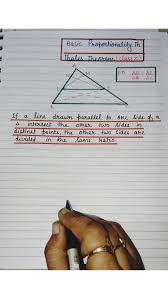 Basic Proportionality Th
Thales Theorem (class X)
A
If a line drawn parallel to one side of, a
Δ intersect the other two sides in
distinct points, the other two sides are
divided in the same ratio